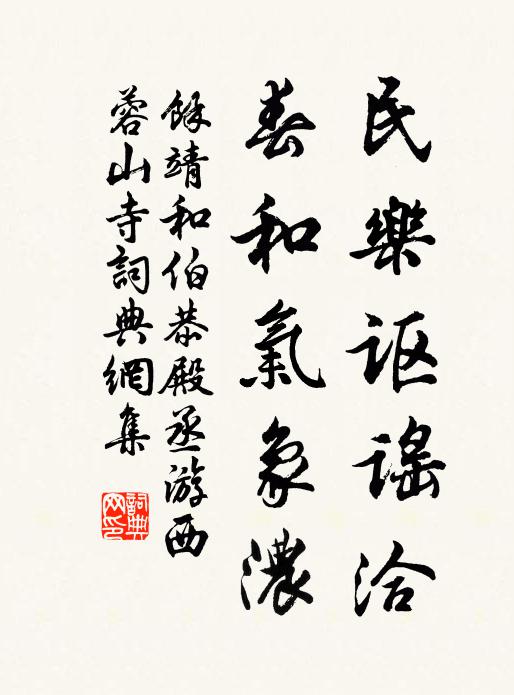 民樂讴謠洽
春和氣象濃
餘靖和伯恭殿丞游西
蓉山寺詞典網集
詞典网印